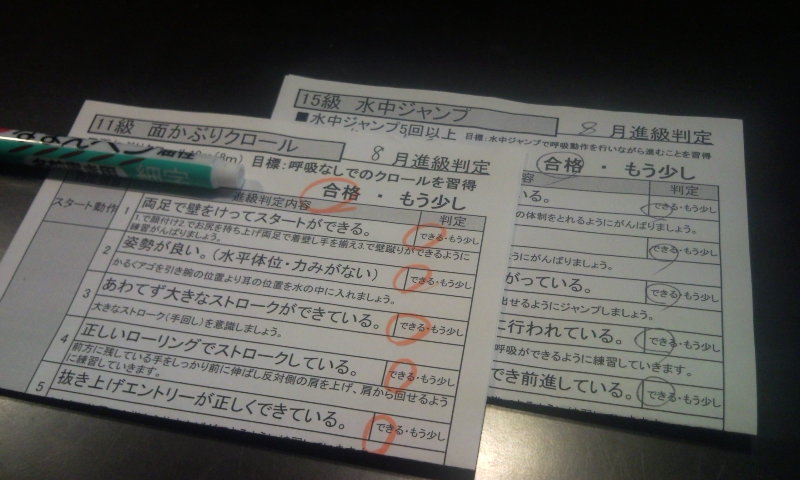 11級 面かぶりクロール
8 月進級判定
目標:呼吸なしでのクロールを習得
合格 ・ もう少し
進級判定内容
判定
スタート動作
1
両足で壁をけってスタートができる。
できる・もう少し
練習がんばりましょう。
2
姿勢が良い。(水平体位・力みがない)
できる・もう少し
かるくアゴを引き腕の位置より耳の位置を水の中に入れましょう。
3
あわてず大きなストロークができている。
できる・もう少し
大きなストローク(手回し)を意識しましょう。
4
正しいローリングでストロークしている。
できる・もう少し
前方に残している手をしっかり前に伸ばし反対側の肩を上げ、肩から回せるよう
に練習していきます。
5
抜き上げエントリーが正しくできている。
できる・もう少し
15級 水中ジャンプ
■水中ジャンプ5回以上
目標:水中ジャンプで呼吸動作を行いながら進むことを習得
8 月進級判定
合格 ・ もう少し
容
判定
いる。
できる・もう少し
の体制をとれるようにがんばりましょう。
できる・もう少し
にがんばりましょう。
がっている。
できる・もう少し
出せるようにジャンプしましょう。
に行われている。
できる・もう少し
呼吸ができるように練習していきます。
でき前進している。
できる・もう少し